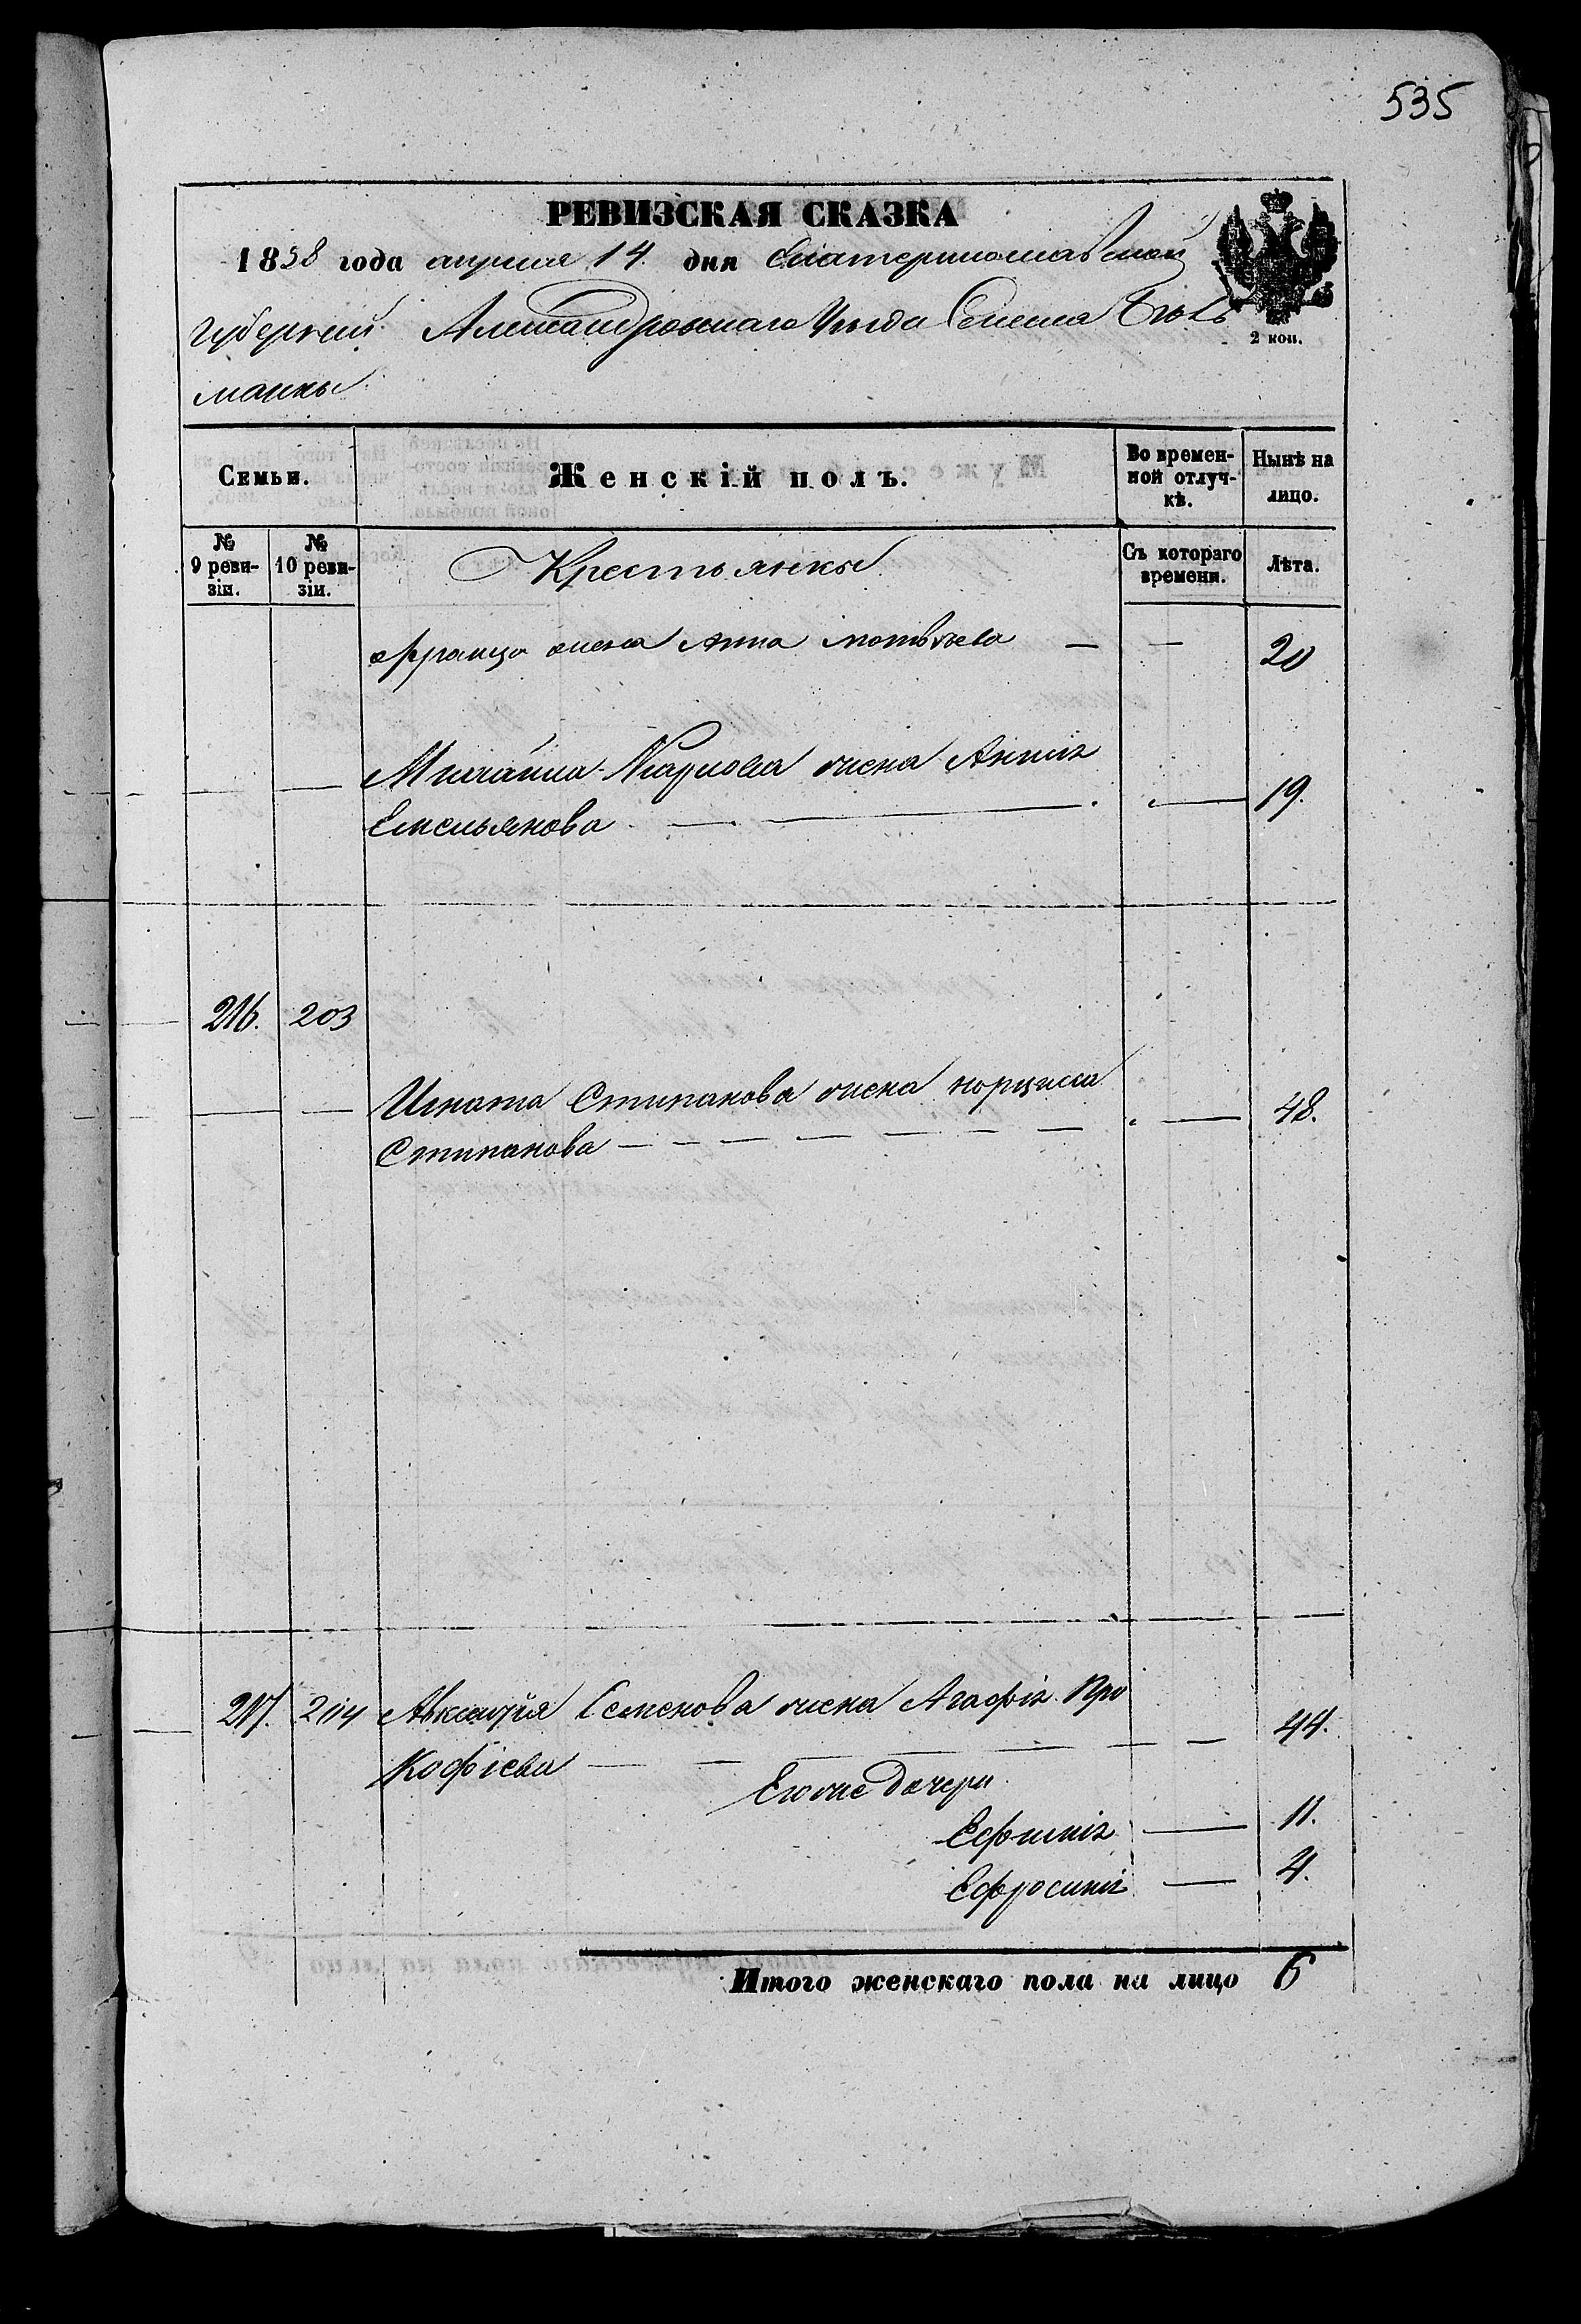 535
РЕВИЗСКАЯ СКАЗКА
1858 года апреля 14. дня Екатеринославской
2 коп.
Губерній Александровскаго Уѣзда Селенія Бѣль
манки
Семьи.
Женскій полъ.
Во времен-
ной отлуч-
кѣ.
Нынѣ на
лицо.
№
9 реви-
зіи.
№
10 реви-
зіи.
Крестьянки
Съ котораго
времени.
Лѣта.
жена Анна Мотвѣева — — 20
Михаила Карпова жена Анна
Емельянова — 19.
216. 203
Игната Стипанова жена
Стипанова — 48.
217. 204 Авксентія Семенова жена Агафія Про
кофіева — 44.
Его же дочери
Ефимія — 11.
Ефросинія — 4.
Итого женскаго пола на лицо 6